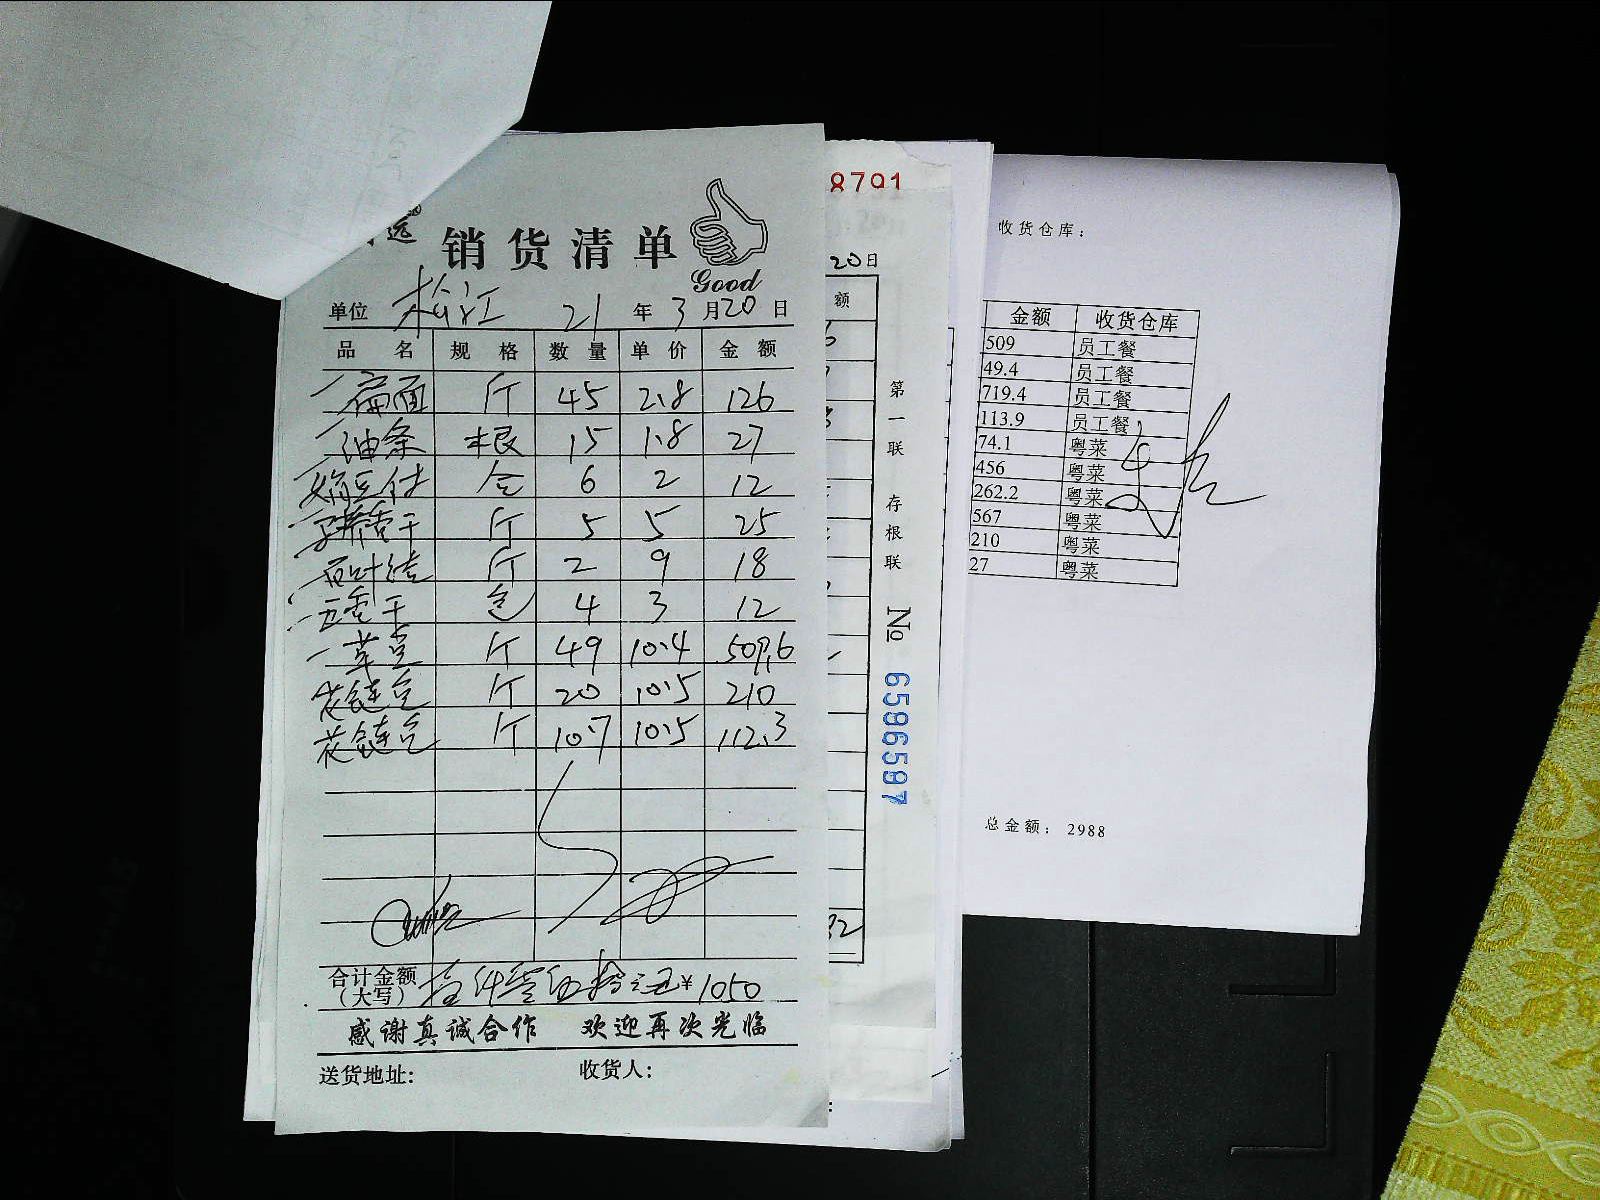 销货清单
Good
单位 松江 21 年 3 月 20 日
品名 规格 数量 单价 金额
扁面 斤 45 2.8 126
油条 根 15 1.8 27
豆付 合 6 2 12
香干 斤 5 5 25
斤 2 9 18
五香干 包 4 3 12
草鱼 斤 49 10.4 509.6
花鲢鱼 斤 20 10.5 210
花鲢鱼 斤 10.7 10.5 112.3
合计金额
（大写） ¥1050
感谢真诚合作 欢迎再次光临
送货地址: 收货人:
8791
20日
额
第一联 存根联
№ 6586587
收货仓库:
金额 收货仓库
509 员工餐
49.4 员工餐
719.4 员工餐
113.9 员工餐
74.1 粤菜
456 粤菜
262.2 粤菜
567 粤菜
210 粤菜
27 粤菜
总金额: 2988